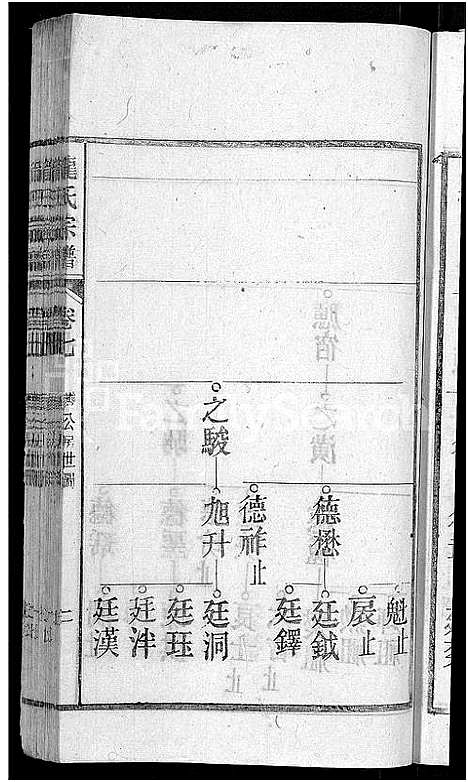 龍氏宗譜
卷七
公房世圖
之駿
德懋
德祚止
旭升
魁止
辰止
廷鉞
廷鐸
廷洞
廷珏
廷泮
廷漢